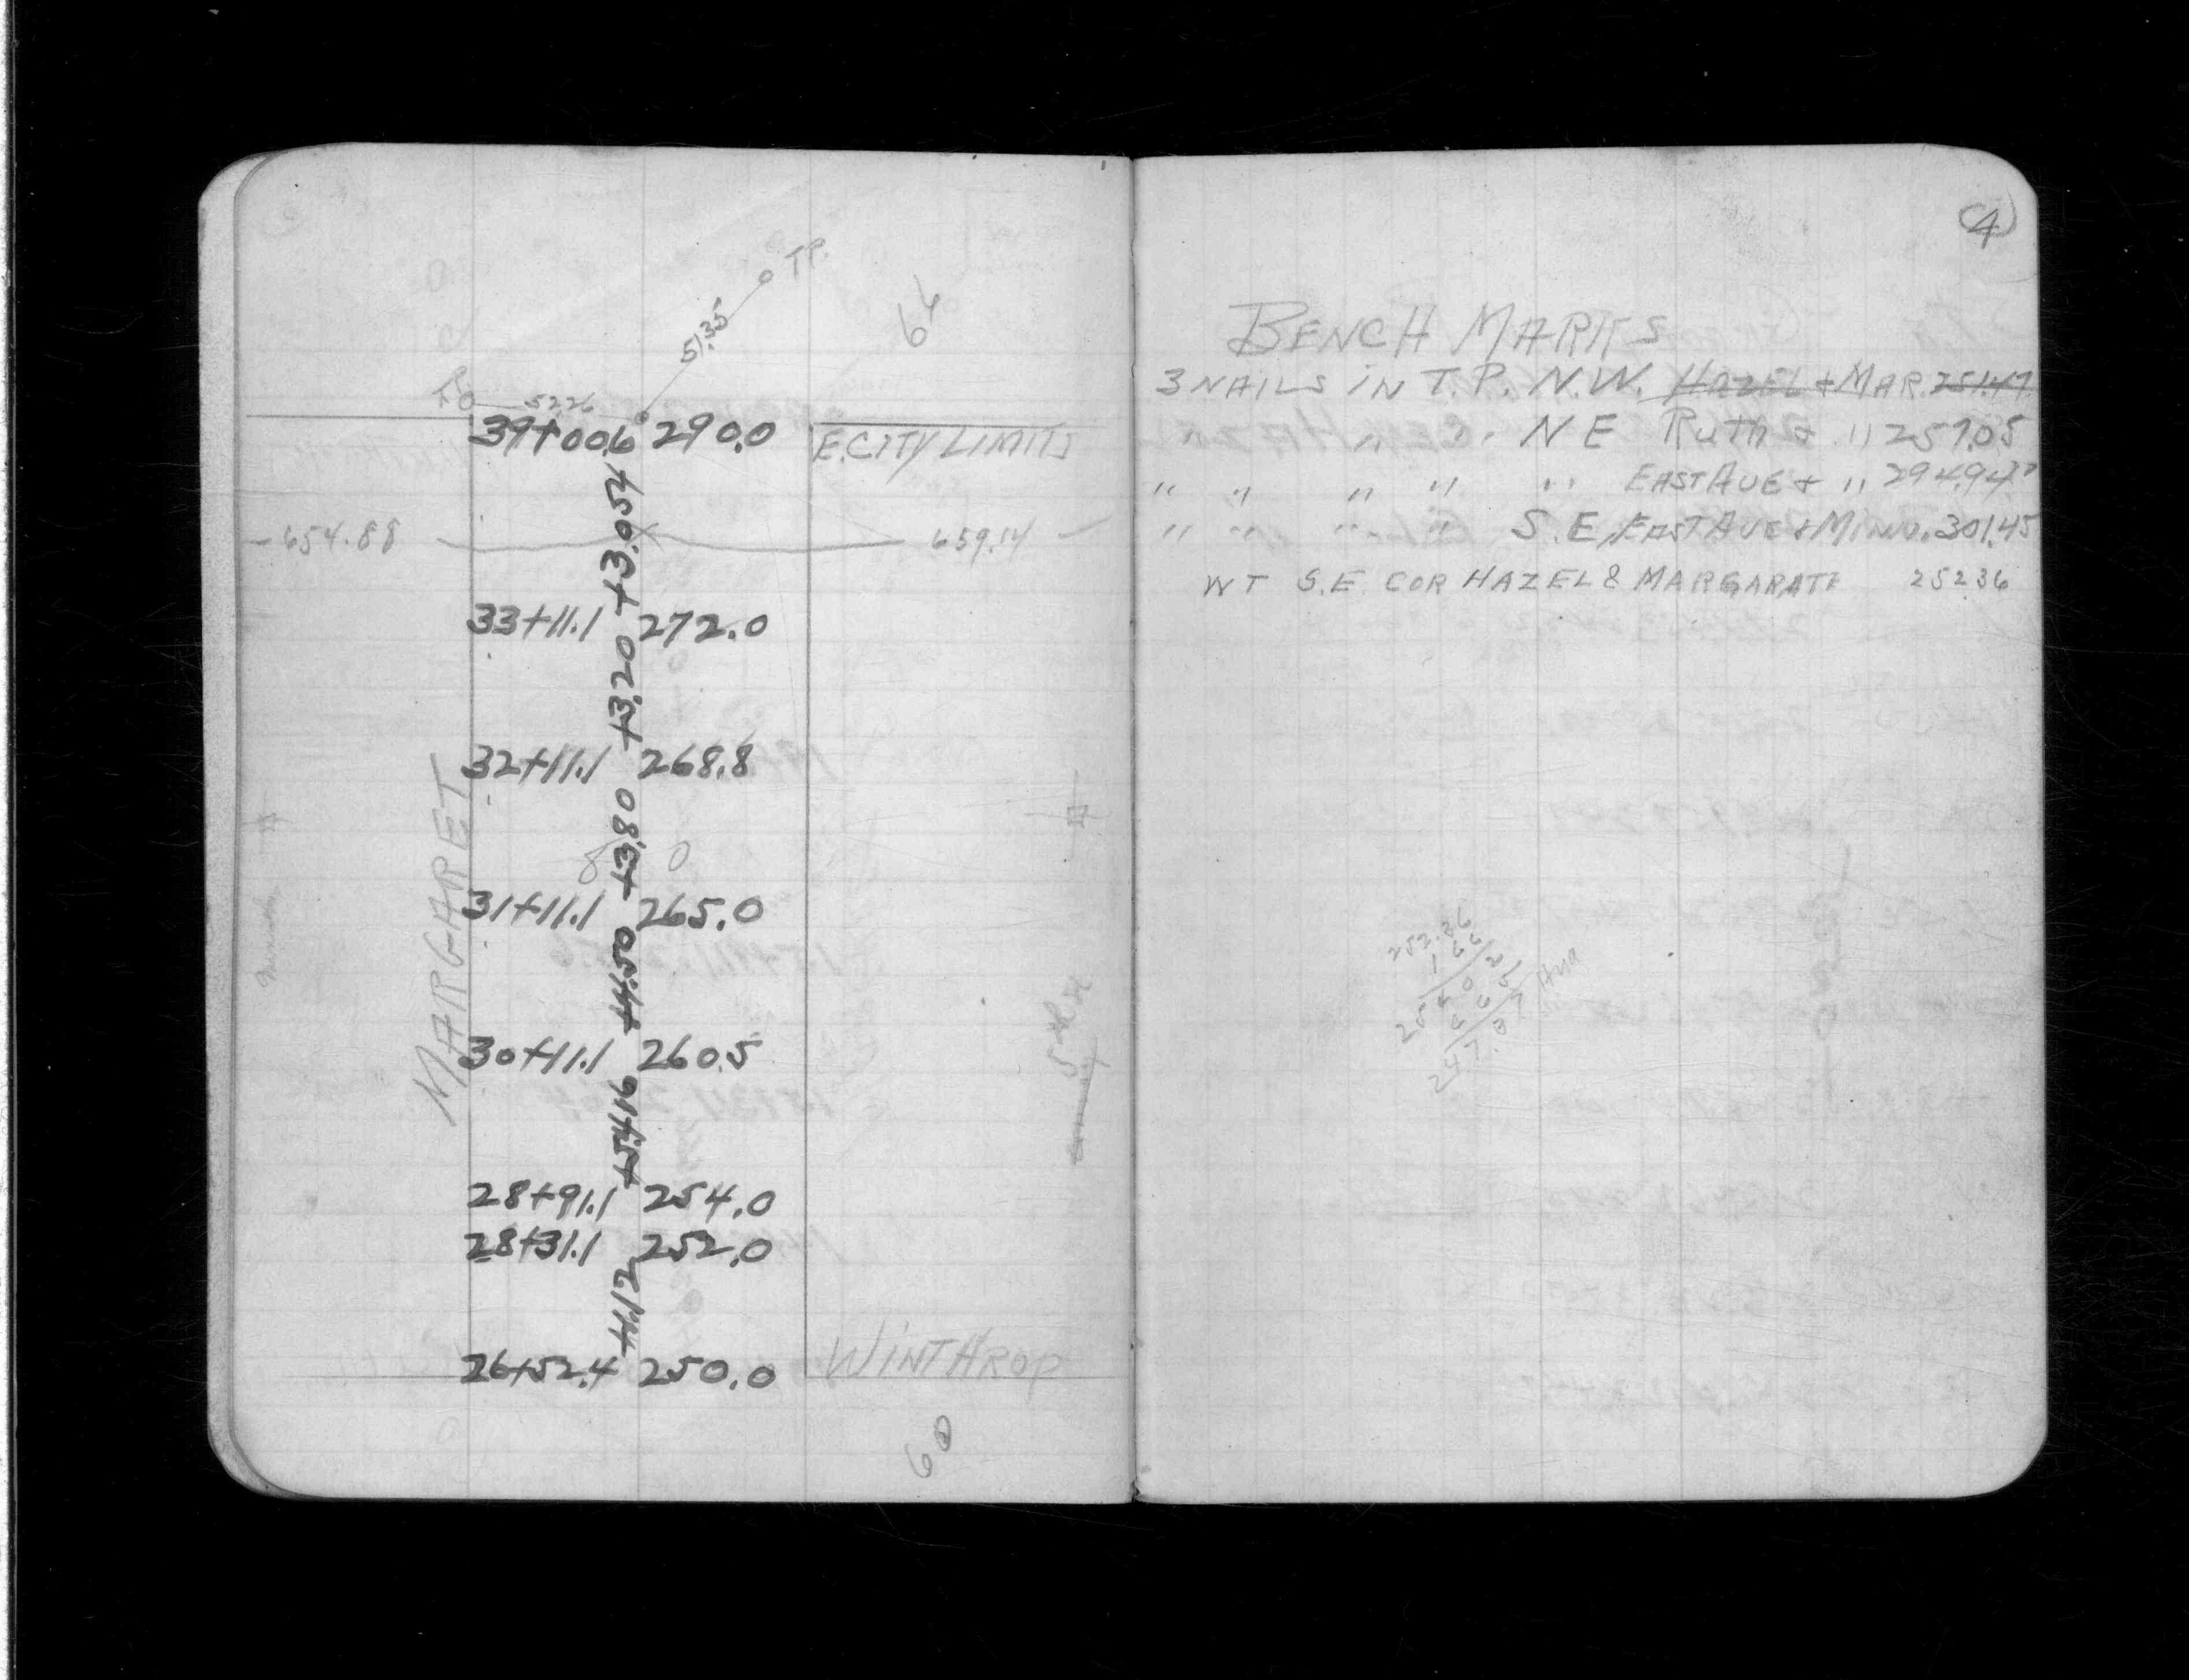 T.P.
51.35
66
T.P. 52.26
39+00.6 290.0 E. CITY LIMITS
+3.054
654.88 659.14
33+11.1 272.0
+3.20
32+11.1 268.8
+3.80
80
31+11.1 265.0
MARGARET
+4.50
30+11.1 260.5
+5.416
28+91.1 254.0
28+31.1 252.0
+1.12
26+52.4 250.0 WINTHROP
60
4
BENCH MARKS
3 NAILS IN T.P. N.W. HAZEL & MAR. 251.47
" " " " N E Ruth & " 257.05
" " " " " EAST AVE & " 294.94
" " " " S.E. EAST AVE & MINN. 301.45
WT S.E. COR HAZEL & MARGARATE 252.36
252.36
1 66
254 02
6 65
247.37